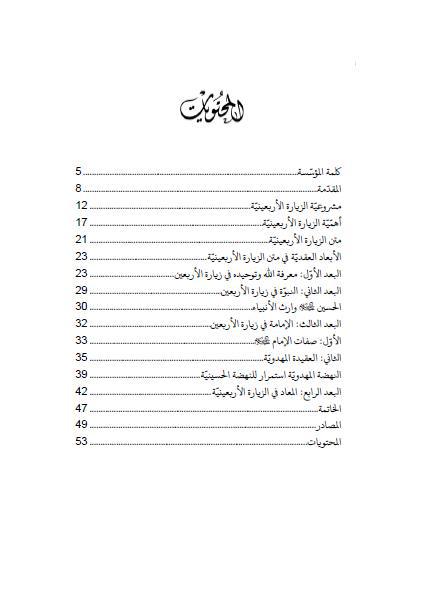 المحتويات
كلمة المؤسّسة 5
المقدّمة 8
مشروعيّة الزيارة الأربعينيّة 12
أهمّيّة الزيارة الأربعينيّة 17
متن الزيارة الأربعينيّة 21
الأبعاد العقديّة في متن الزيارة الأربعينيّة 23
البعد الأوّل: معرفة الله وتوحيده في زيارة الأربعين 23
البعد الثاني: النبوّة في زيارة الأربعين 29
الحسين وارث الأنبياء 30
البعد الثالث: الإمامة في زيارة الأربعين 32
الأوّل: صفات الإمام 33
الثاني: العقيدة المهدويّة 35
النهضة المهدويّة استمرار للنهضة الحسينيّة 39
البعد الرابع: المعاد في الزيارة الأربعينيّة 42
الخاتمة 47
المصادر 49
المحتويات 53